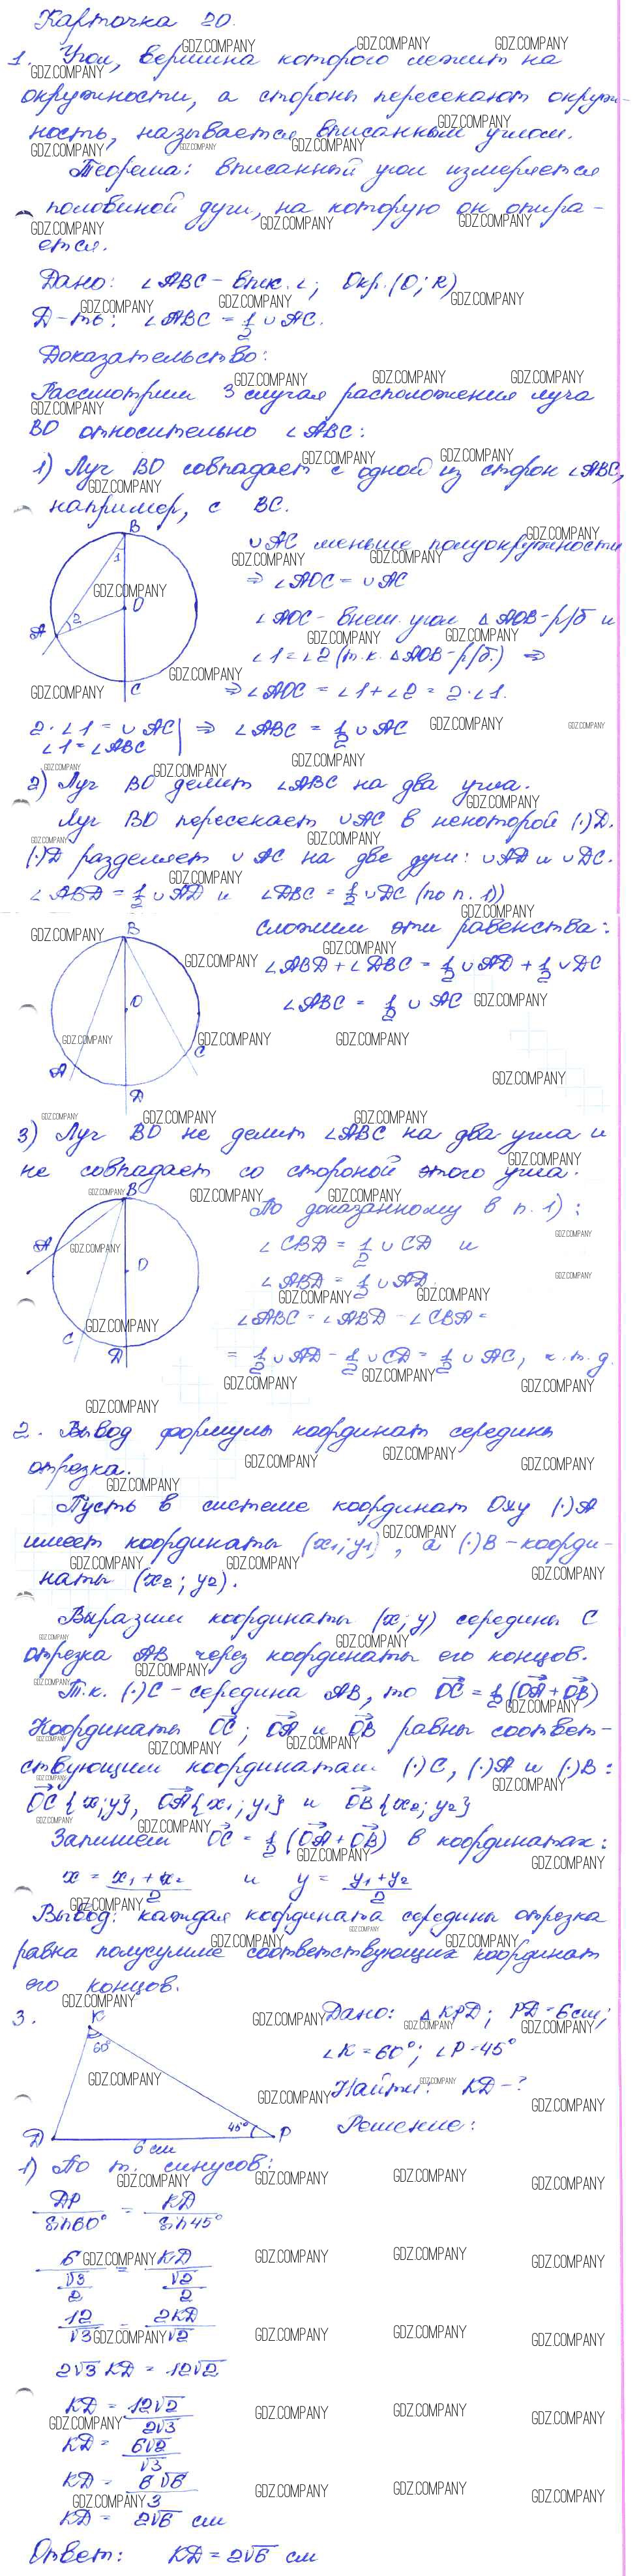 Карточка 20.
1. Угол, вершина которого лежит на
окружности, а стороны пересекают окруж-
ность, называется вписанным углом.
Теорема: вписанный угол измеряется
половиной дуги, на которую он опира-
ется.
Дано: ∠ABC - впис. ∠; Окр.(O; R)
Д-ть: ∠ABC = 1/2 ∪AC.
Доказательство:
Рассмотрим 3 случая расположения луча
BO относительно ∠ABC:
1) Луч BO совпадает с одной из сторон ∠ABC,
например, с BC.
B
1
O
2
A
C
∪AC меньше полуокружности
⇒ ∠AOC = ∪AC
∠AOC - внеш. угол △AOB - р/б и
∠1 = ∠2 (т.к. △AOB - р/б.) ⇒
⇒ ∠AOC = ∠1 + ∠2 = 2·∠1.
2·∠1 = ∪AC | ⇒ ∠ABC = 1/2 ∪AC
∠1 = ∠ABC
2) Луч BO делит ∠ABC на два угла.
Луч BO пересекает ∪AC в некоторой (·)D.
(·)D разделяет ∪AC на две дуги: ∪AD и ∪DC.
∠ABD = 1/2 ∪AD и ∠DBC = 1/2 ∪DC (по п. 1))
B
O
A
C
D
Сложим эти равенства:
∠ABD + ∠DBC = 1/2 ∪AD + 1/2 ∪DC
∠ABC = 1/2 ∪AC
3) Луч BO не делит ∠ABC на два угла и
не совпадает со стороной этого угла.
B
A
O
C
D
По доказанному в п. 1):
∠CBD = 1/2 ∪CD и
∠ABD = 1/2 ∪AD.
∠ABC = ∠ABD - ∠CBD =
= 1/2 ∪AD - 1/2 ∪CD = 1/2 ∪AC, ч.т.д.
2. Вывод формулы координат середины
отрезка.
Пусть в системе координат Oxy (·)A
имеет координаты (x₁; y₁), а (·)B - коорди-
наты (x₂; y₂).
Выразим координаты (x; y) середины C
отрезка AB через координаты его концов.
Т.к. (·)C - середина AB, то OC = 1/2 (OA + OB)
Координаты OC; OA и OB равны соответ-
ствующим координатам (·)C, (·)A и (·)B:
OC{x; y}, OA{x₁; y₁} и OB{x₂; y₂}
Запишем OC = 1/2 (OA + OB) в координатах:
x = (x₁ + x₂)/2 и y = (y₁ + y₂)/2
Вывод: каждая координата середины отрезка
равна полусумме соответствующих координат
его концов.
3.
K
60°
D
6 см
45°
P
Дано: △KPD; PD = 6см;
∠K = 60°; ∠P = 45°
Найти: KD - ?
Решение:
1) По т. синусов:
DP/sin60° = KD/sin45°
6/(√3/2) = KD/(√2/2)
12/√3 = 2KD/√2
2√3 KD = 12√2
KD = 12√2/2√3
KD = 6√2/√3
KD = 6√6/3
KD = 2√6 см
Ответ: KD = 2√6 см
GDZ.COMPANY